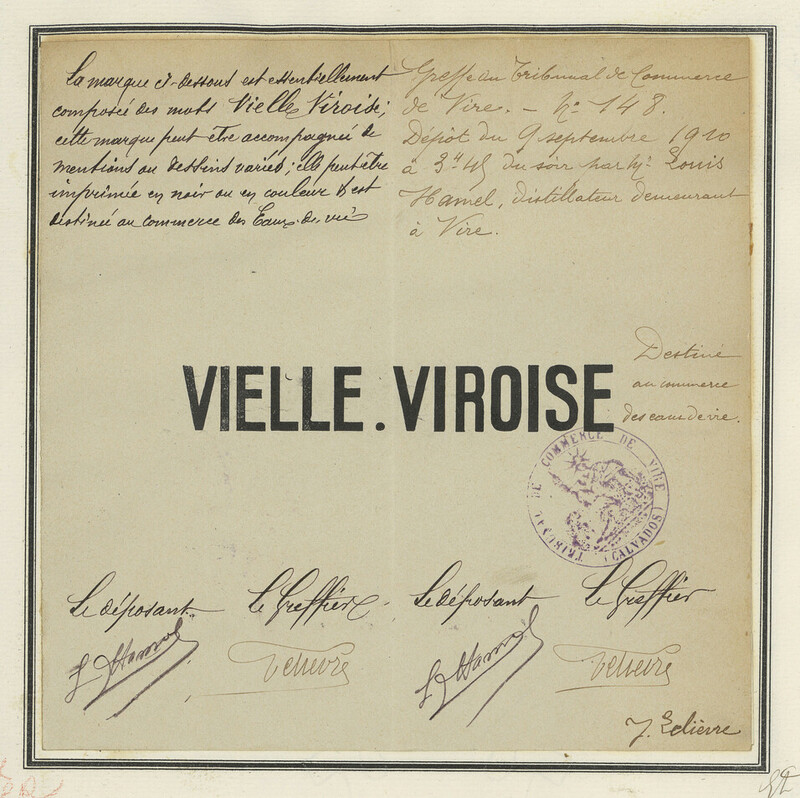 La marque ci-dessous est essentiellement
composée des mots Vielle Viroise;
cette marque peut être accompagnée de
mentions ou dessins variés; elle peut être
imprimée en noir ou en couleur & est
destinée au commerce des Eaux-de-vie
Greffe du Tribunal de Commerce
de Vire. - No 148.
Dépôt du 9 septembre 1910
à 3h45 du soir par Mr Louis
Hamel, distillateur demeurant
à Vire.
Destiné
au commerce
des eaux de vie.
VIELLE.VIROISE
TRIBUNAL DE COMMERCE DE VIRE
(CALVADOS)
Le déposant Le Greffier
Le déposant Le Greffier
L Hamel
L Hamel
J. Lelièvre